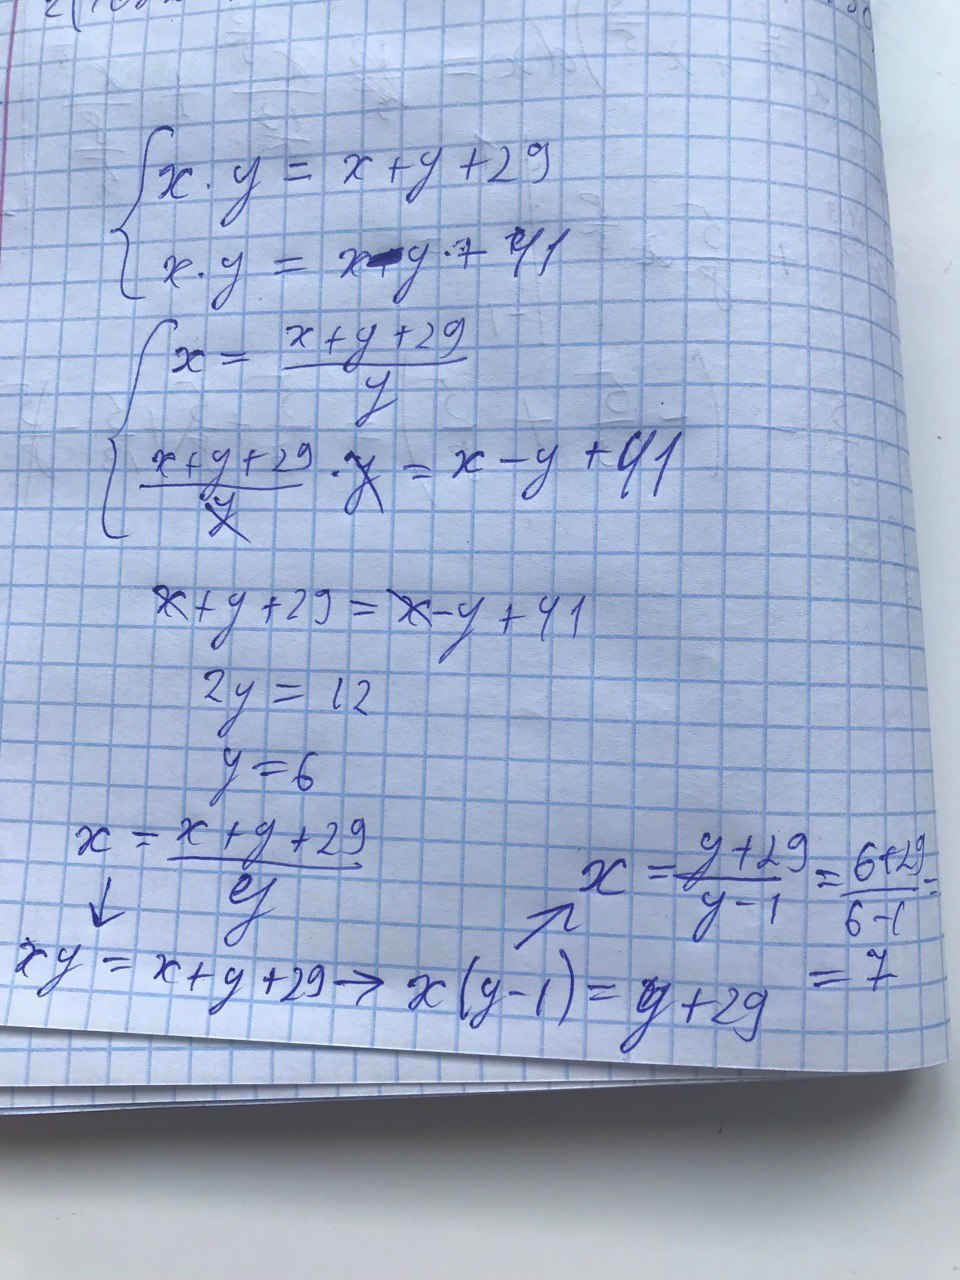 x · y = x + y + 29
x · y = x - y + 41
x = (x + y + 29) / y
(x + y + 29) / y · y = x - y + 41
x + y + 29 = x - y + 41
2y = 12
y = 6
x = (x + y + 29) / y
xy = x + y + 29 → x(y - 1) = y + 29
x = (y + 29) / (y - 1) = (6 + 29) / (6 - 1) =
= 7